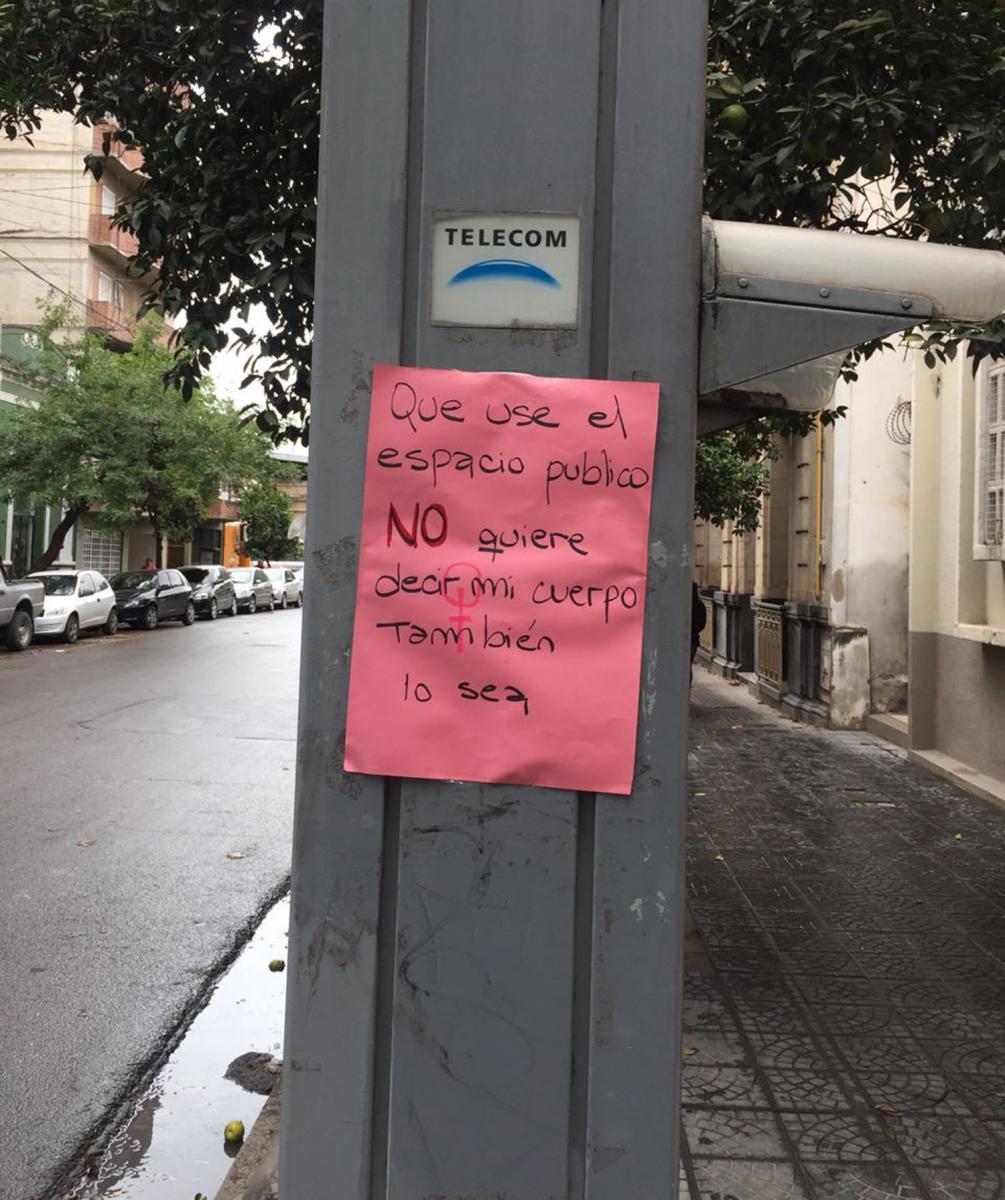 TELECOM
Que use el
espacio publico
NO quiere
decir mi cuerpo
También
lo sea